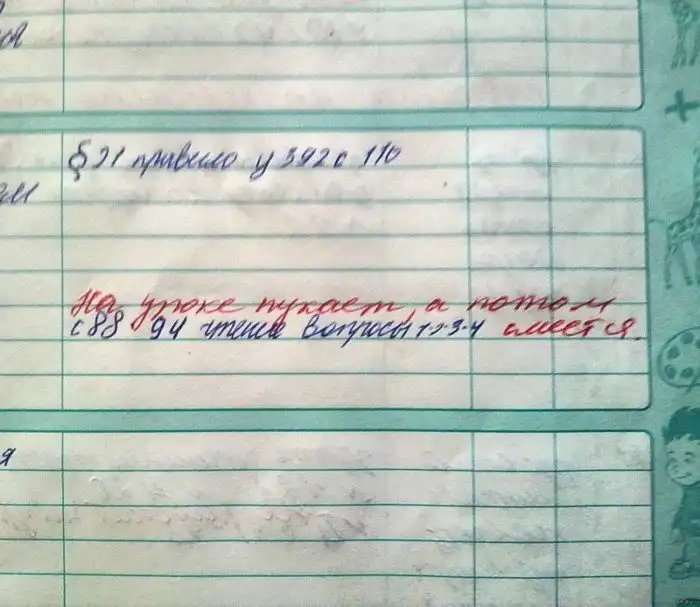 я
§ 21 правило у 392 с 116
ам
На уроке пукает, а потом
с 88 94 чтение вопросы 1-2-3-4 смеется.
я